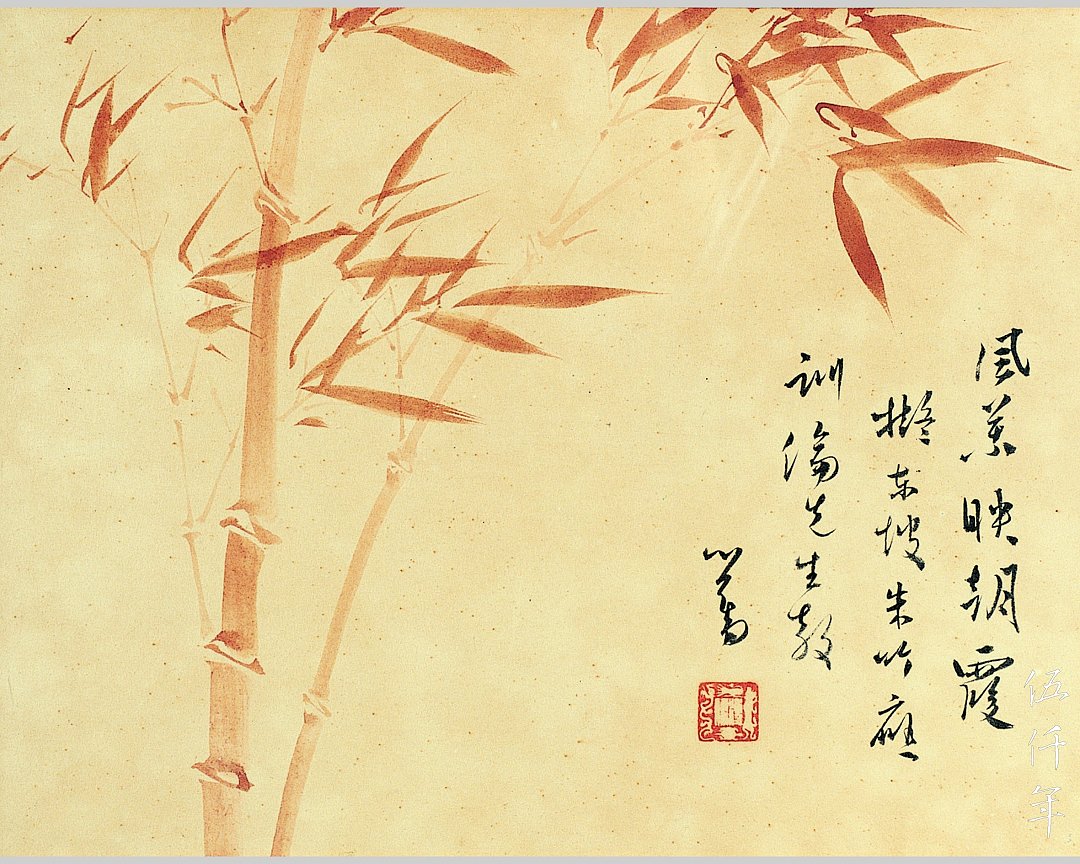 風葉映朝霞
擬東坡朱竹應
訓倫先生教
心畬
伍仟年